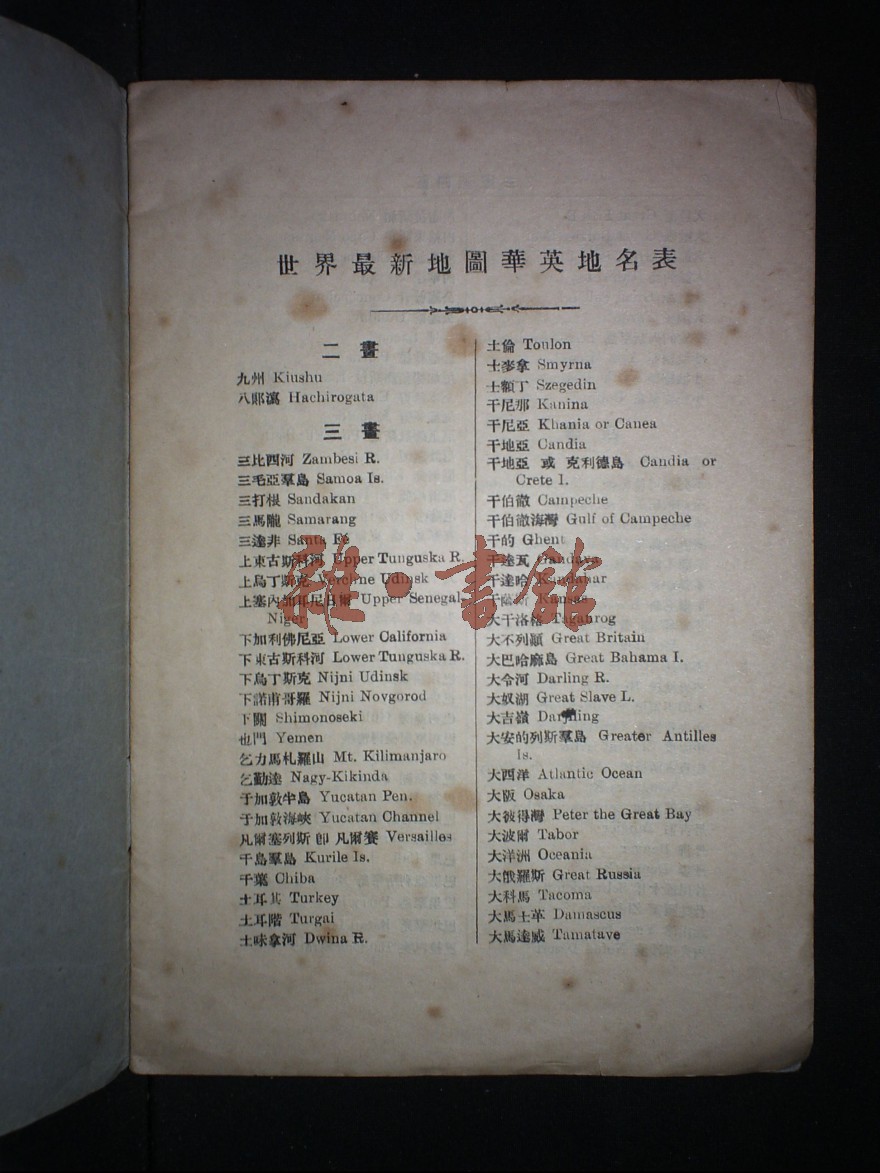 世界最新地圖華英地名表
二畫
九州 Kiushu
八郎瀉 Hachirogata
三畫
三比西河 Zambesi R.
三毛亞羣島 Samoa Is.
三打根 Sandakan
三馬隴 Samarang
三達非 Santa Fé
上東古斯科河 Upper Tunguska R.
上烏丁斯克 Verchne Udinsk
上塞內加耳尼日爾 Upper Senegal
Niger
下加利佛尼亞 Lower California
下東古斯科河 Lower Tunguska R.
下烏丁斯克 Nijni Udinsk
下諾甫哥羅 Nijni Novgorod
下關 Shimonoseki
也門 Yemen
乞力馬札羅山 Mt. Kilimanjaro
乞勤達 Nagy-Kikinda
于加敦半島 Yucatan Pen.
于加敦海峽 Yucatan Channel
凡爾塞列斯 卽 凡爾賽 Versailles
千島羣島 Kurile Is.
千葉 Chiba
土耳其 Turkey
土耳階 Turgai
土味拿河 Dwina R.
土倫 Toulon
士麥拿 Smyrna
士額丁 Szegedin
干尼那 Kanina
干尼亞 Khania or Canea
干地亞 Candia
干地亞 或 克利德島 Candia or
Crete I.
干伯徹 Campeche
干伯徹海灣 Gulf of Campeche
干的 Ghent
干達瓦 Gandava
干達哈 Kandahar
干薩斯 Kansas
大干洛格 Taganrog
大不列顚 Great Britain
大巴哈麻島 Great Bahama I.
大令河 Darling R.
大奴湖 Great Slave L.
大吉嶺 Darjiling
大安的列斯羣島 Greater Antilles
Is.
大西洋 Atlantic Ocean
大阪 Osaka
大彼得灣 Peter the Great Bay
大波爾 Tabor
大洋洲 Oceania
大俄羅斯 Great Russia
大科馬 Tacoma
大馬士革 Damascus
大馬達威 Tamatave
雜·書館